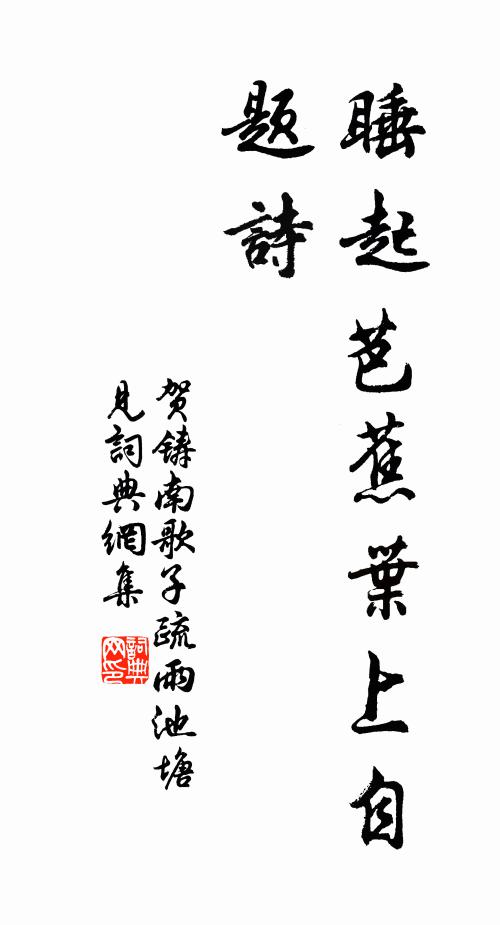 睡起芭蕉葉上自
題詩
賀鑄南歌子疏雨池塘
見詞典網集
詞典
网印